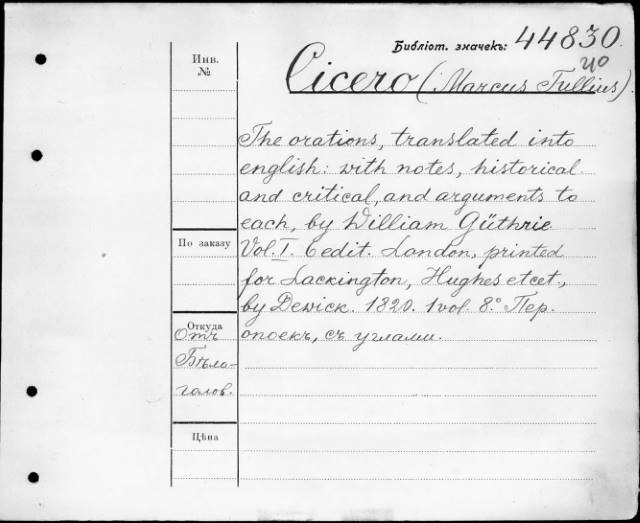 Библіот. значекъ: 44830.
Инв.
№
Cicero (Marcus Tullius).
The orations, translated into
english: with notes, historical
and critical, and arguments to
each, by William Güthrie.
Vol. I. 6 edit. London, printed
for Lackington, Hughes etcet.,
by Dewick. 1820. 1 vol. 8.° Пер.
опоекъ, съ углами.
По заказу
Откуда
Отъ
Бѣло-
голов.
Цѣна